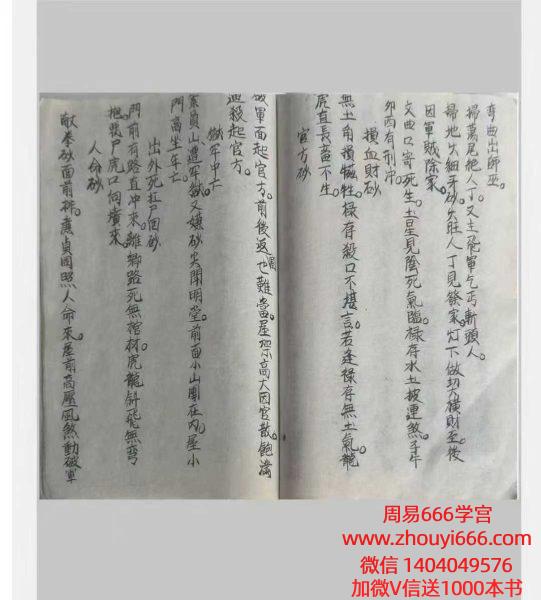 弯曲出師巫。
掃蕩尾把人丁。又主飛軍乞丐斬頭人。
掃地出細牙砂出旺人丁見發家。灯下做契横財至。後
因軍賊除家。
文曲口害死生。土星見陰死氣臨。禄存水土坡連煞子午
卯酉有刑冲
損血財砂
無土角損犧牲。禄存殺口不堪言。若逢禄存無土氣。龍
虎直長畜不生。
官方砂
破軍面起官方。前後返也難當。屋場高大因官散。飽滿
逆殺起官方。
獄牢中亡
案員山遭牢獄。又嫌砂尖閗明堂。前面小山團在内。屋小
門高坐牢亡。
出外死扛尸回砂
門前有路直冲來。離鄉路死無棺材。虎龍斜飛無弯
抱。喪尸虎口向墳來。
人命砂
献拳砂面前排。廉貞回照人命來。屋前高壓風煞動破軍
周易666学宫
www.zhouyi666.com
微信 1404049576
加微V信送1000本书